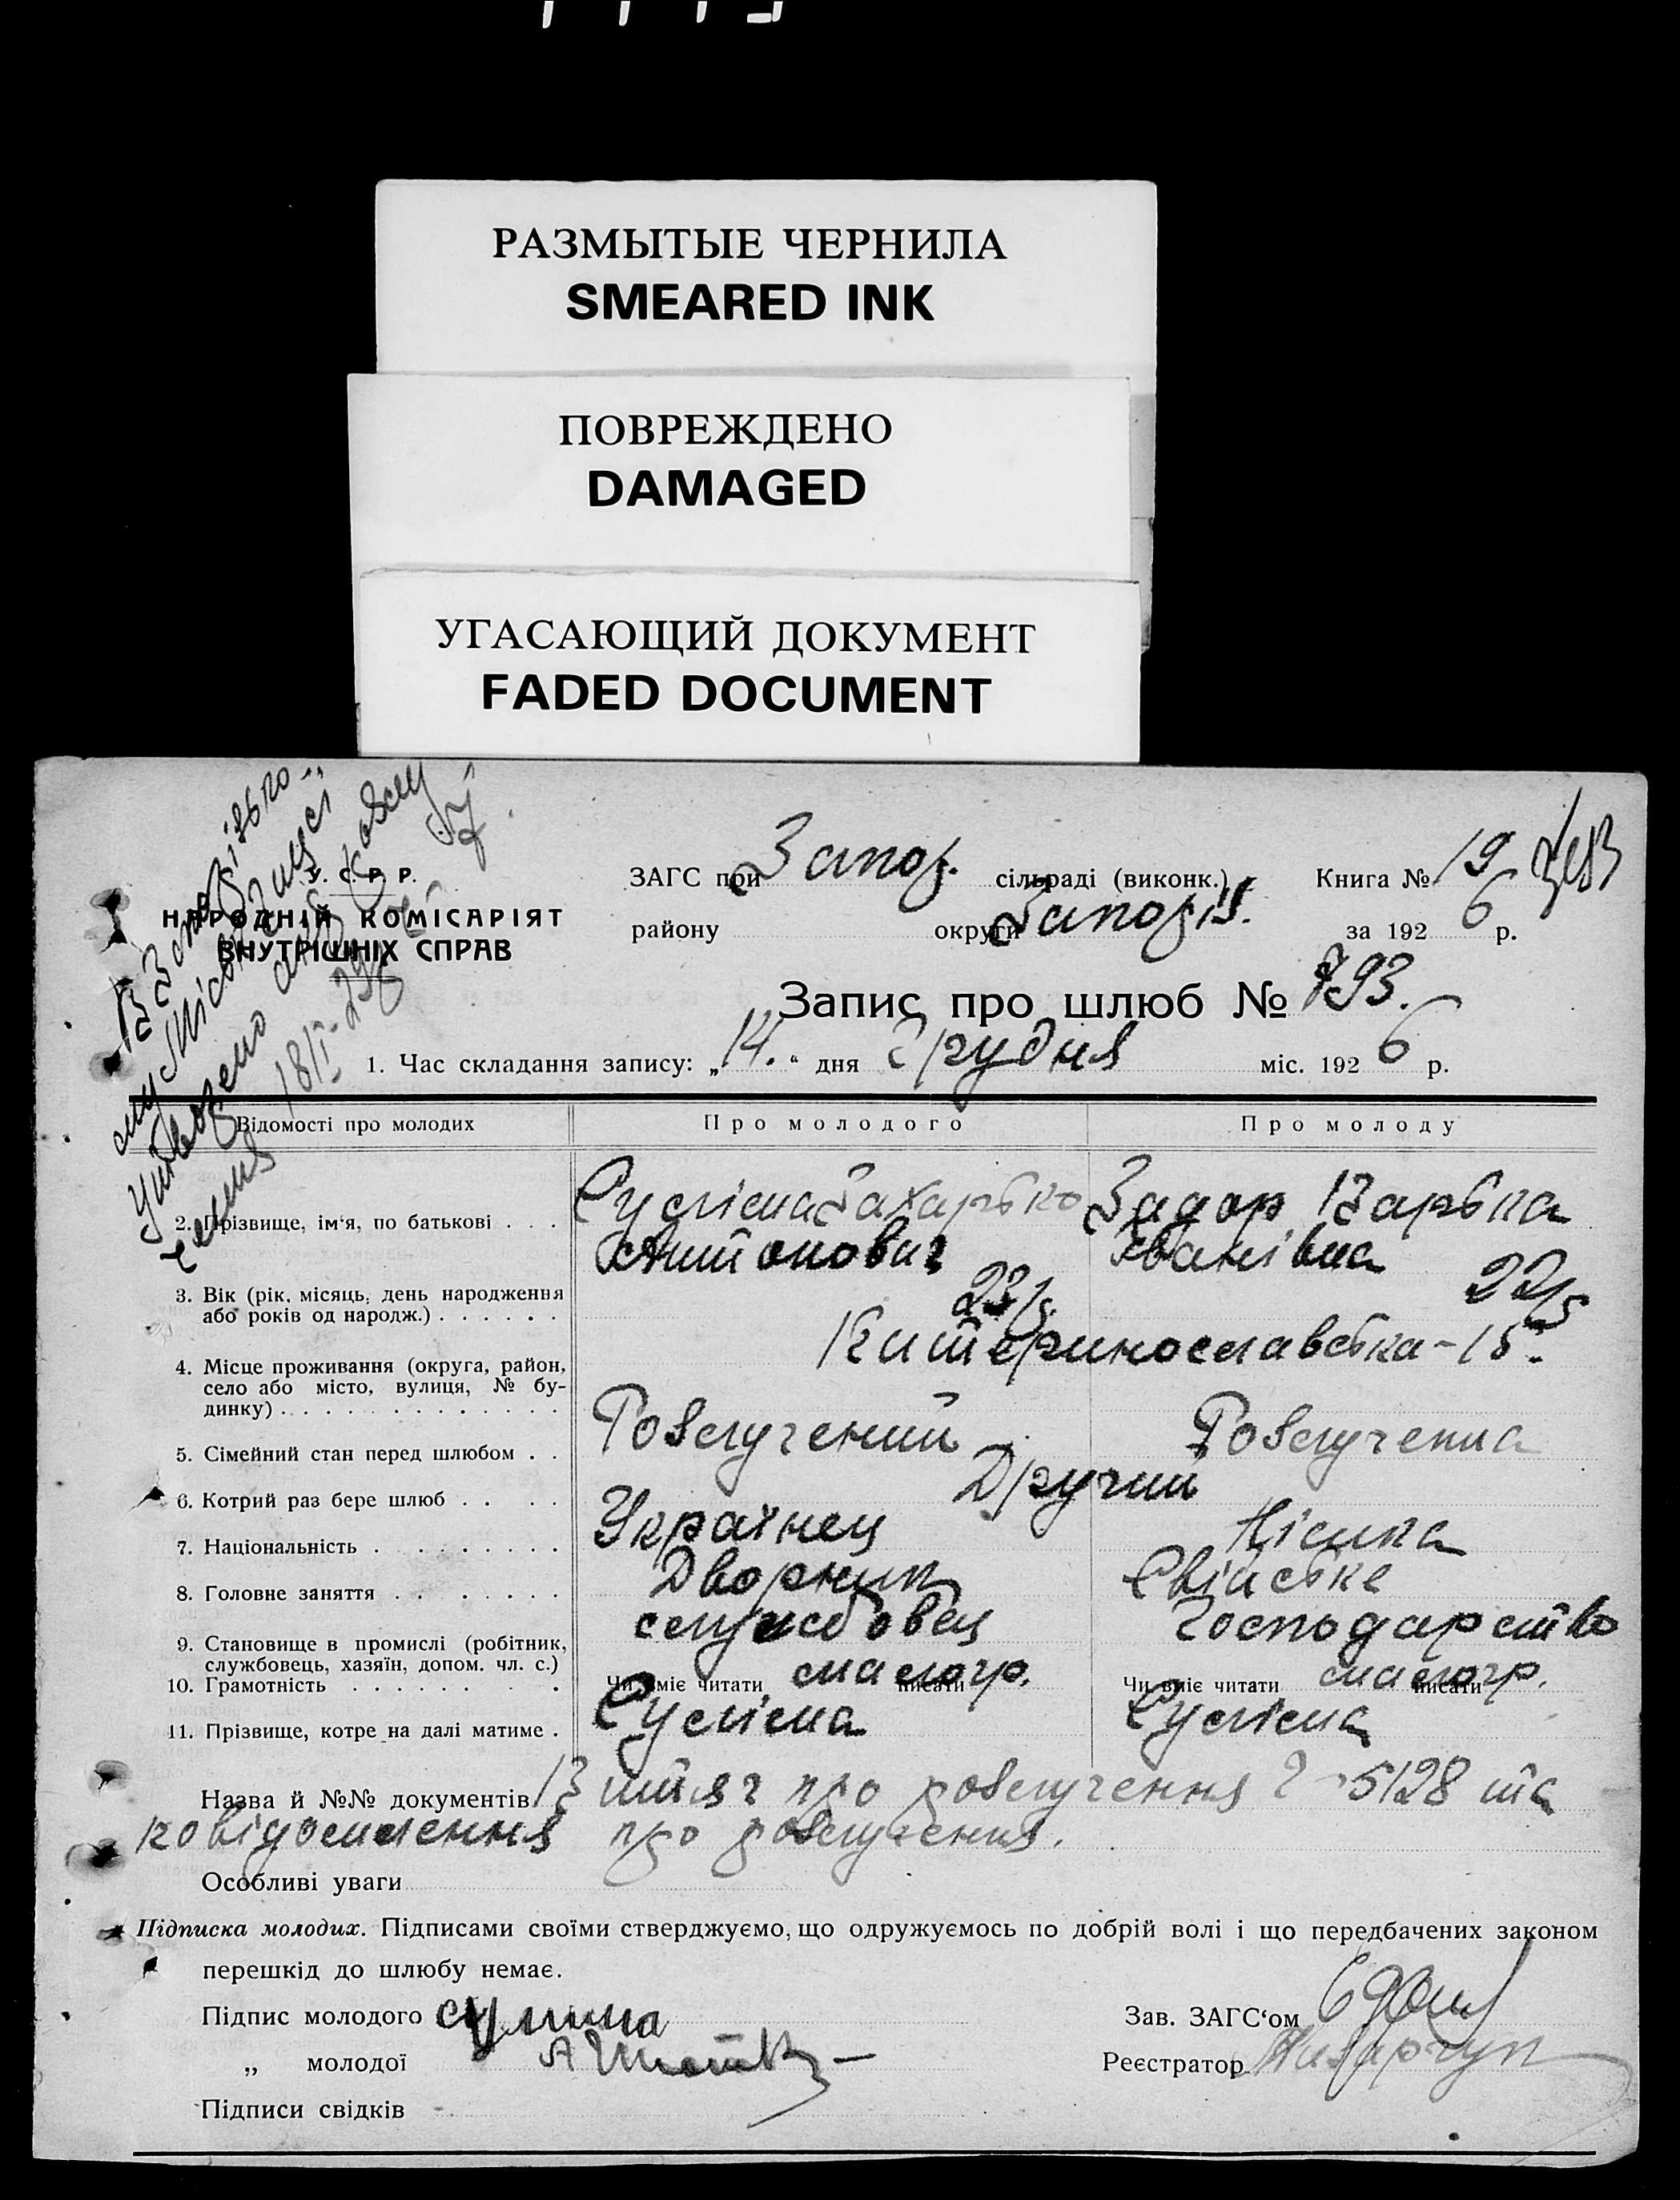 РАЗМЫТЫЕ ЧЕРНИЛА
SMEARED INK
ПОВРЕЖДЕНО
DAMAGED
УГАСАЮЩИЙ ДОКУМЕНТ
FADED DOCUMENT
У. С. Р. Р.
НАРОДНІЙ КОМІСАРІЯТ
ВНУТРІШНІХ СПРАВ
ЗАГС при Запор. сільраді (виконк.) Книга № 19
району округи Запоріз. за 1926 р.
Запис про шлюб № 793.
1. Час складання запису: „14.“ дня Грудня міс. 1926 р.
Відомості про молодих Про молодого Про молоду
2. Прізвище, ім‘я, по батькові . . . Суліма Захарько Задор Варька
Антонович Іванівна
3. Вік (рік, місяць, день народження
або років од народж.) . . . . . . 22/5
4. Місце проживання (округа, район,
село або місто, вулиця, № бу-
динку) . . . . . . . . . . . . . Катеринославська-15.
5. Сімейний стан перед шлюбом . . Розлучений Розлучена
6. Котрий раз бере шлюб . . . . Другий
7. Національність . . . . . . . . Українец Німка
8. Головне заняття . . . . . . . Дворник Свійське
9. Становище в промислі (робітник,
службовець, хазяїн, допом. чл. с.) службовец господарство
10. Грамотність . . . . . . . . Чи вміє читати малогр. писати Чи вміє читати малогр. писати
11. Прізвище, котре на далі матиме . Суліма Суліма
Назва й №№ документів Витяг про розлучення 5128 та
повідомлення про розлучення.
Особливі уваги
Підписка молодих. Підписами своїми стверджуємо, що одружуємось по добрій волі і що передбачених законом
перешкід до шлюбу немає.
Підпис молодого сулима Зав. ЗАГС‘ом
„ молодої Реєстратор
Підписи свідків